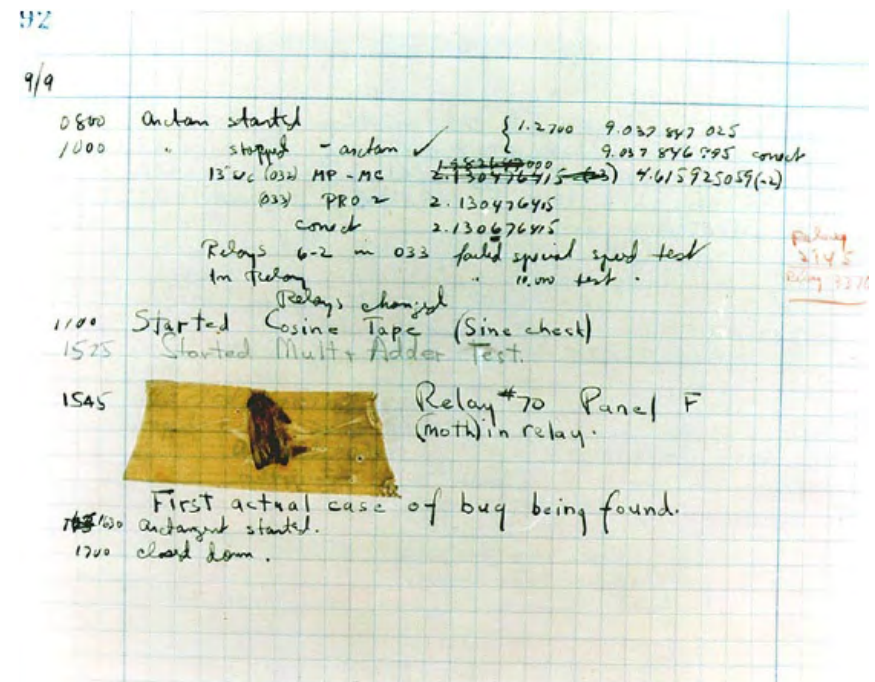 92
9/9
0800 antan started { 1.2700 9.037 847 025
1000 " stopped - antan ✓ { 9.037 846 995 correct
13"uc (032) MP - MC 2.130476415 4.615925059(-2)
(033) PRO 2 2.130476415
correct 2.130676415
Relays 6-2 in 033 failed special speed test
In Relay " 10.000 test .
Relays changed
1100 Started Cosine Tape (Sine check)
1525 Started Mult + Adder Test.
1545 Relay #70 Panel F
(moth) in relay.
First actual case of bug being found.
1630 antangent started.
1700 closed down .
Relay
Relay 3370